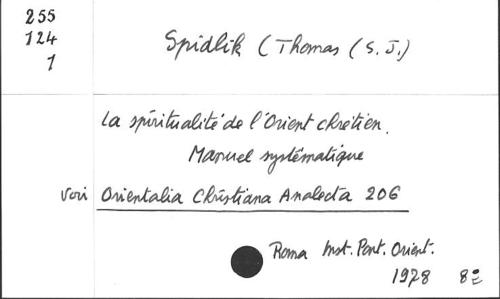 255
124
1
Spidlik (Thomas (S.J.)
La spiritualité de l'Orient chrétien.
Manuel systématique
Vori Orientalia Christiana Analecta 206
Roma Inst. Pont. Orient.
1978 8º